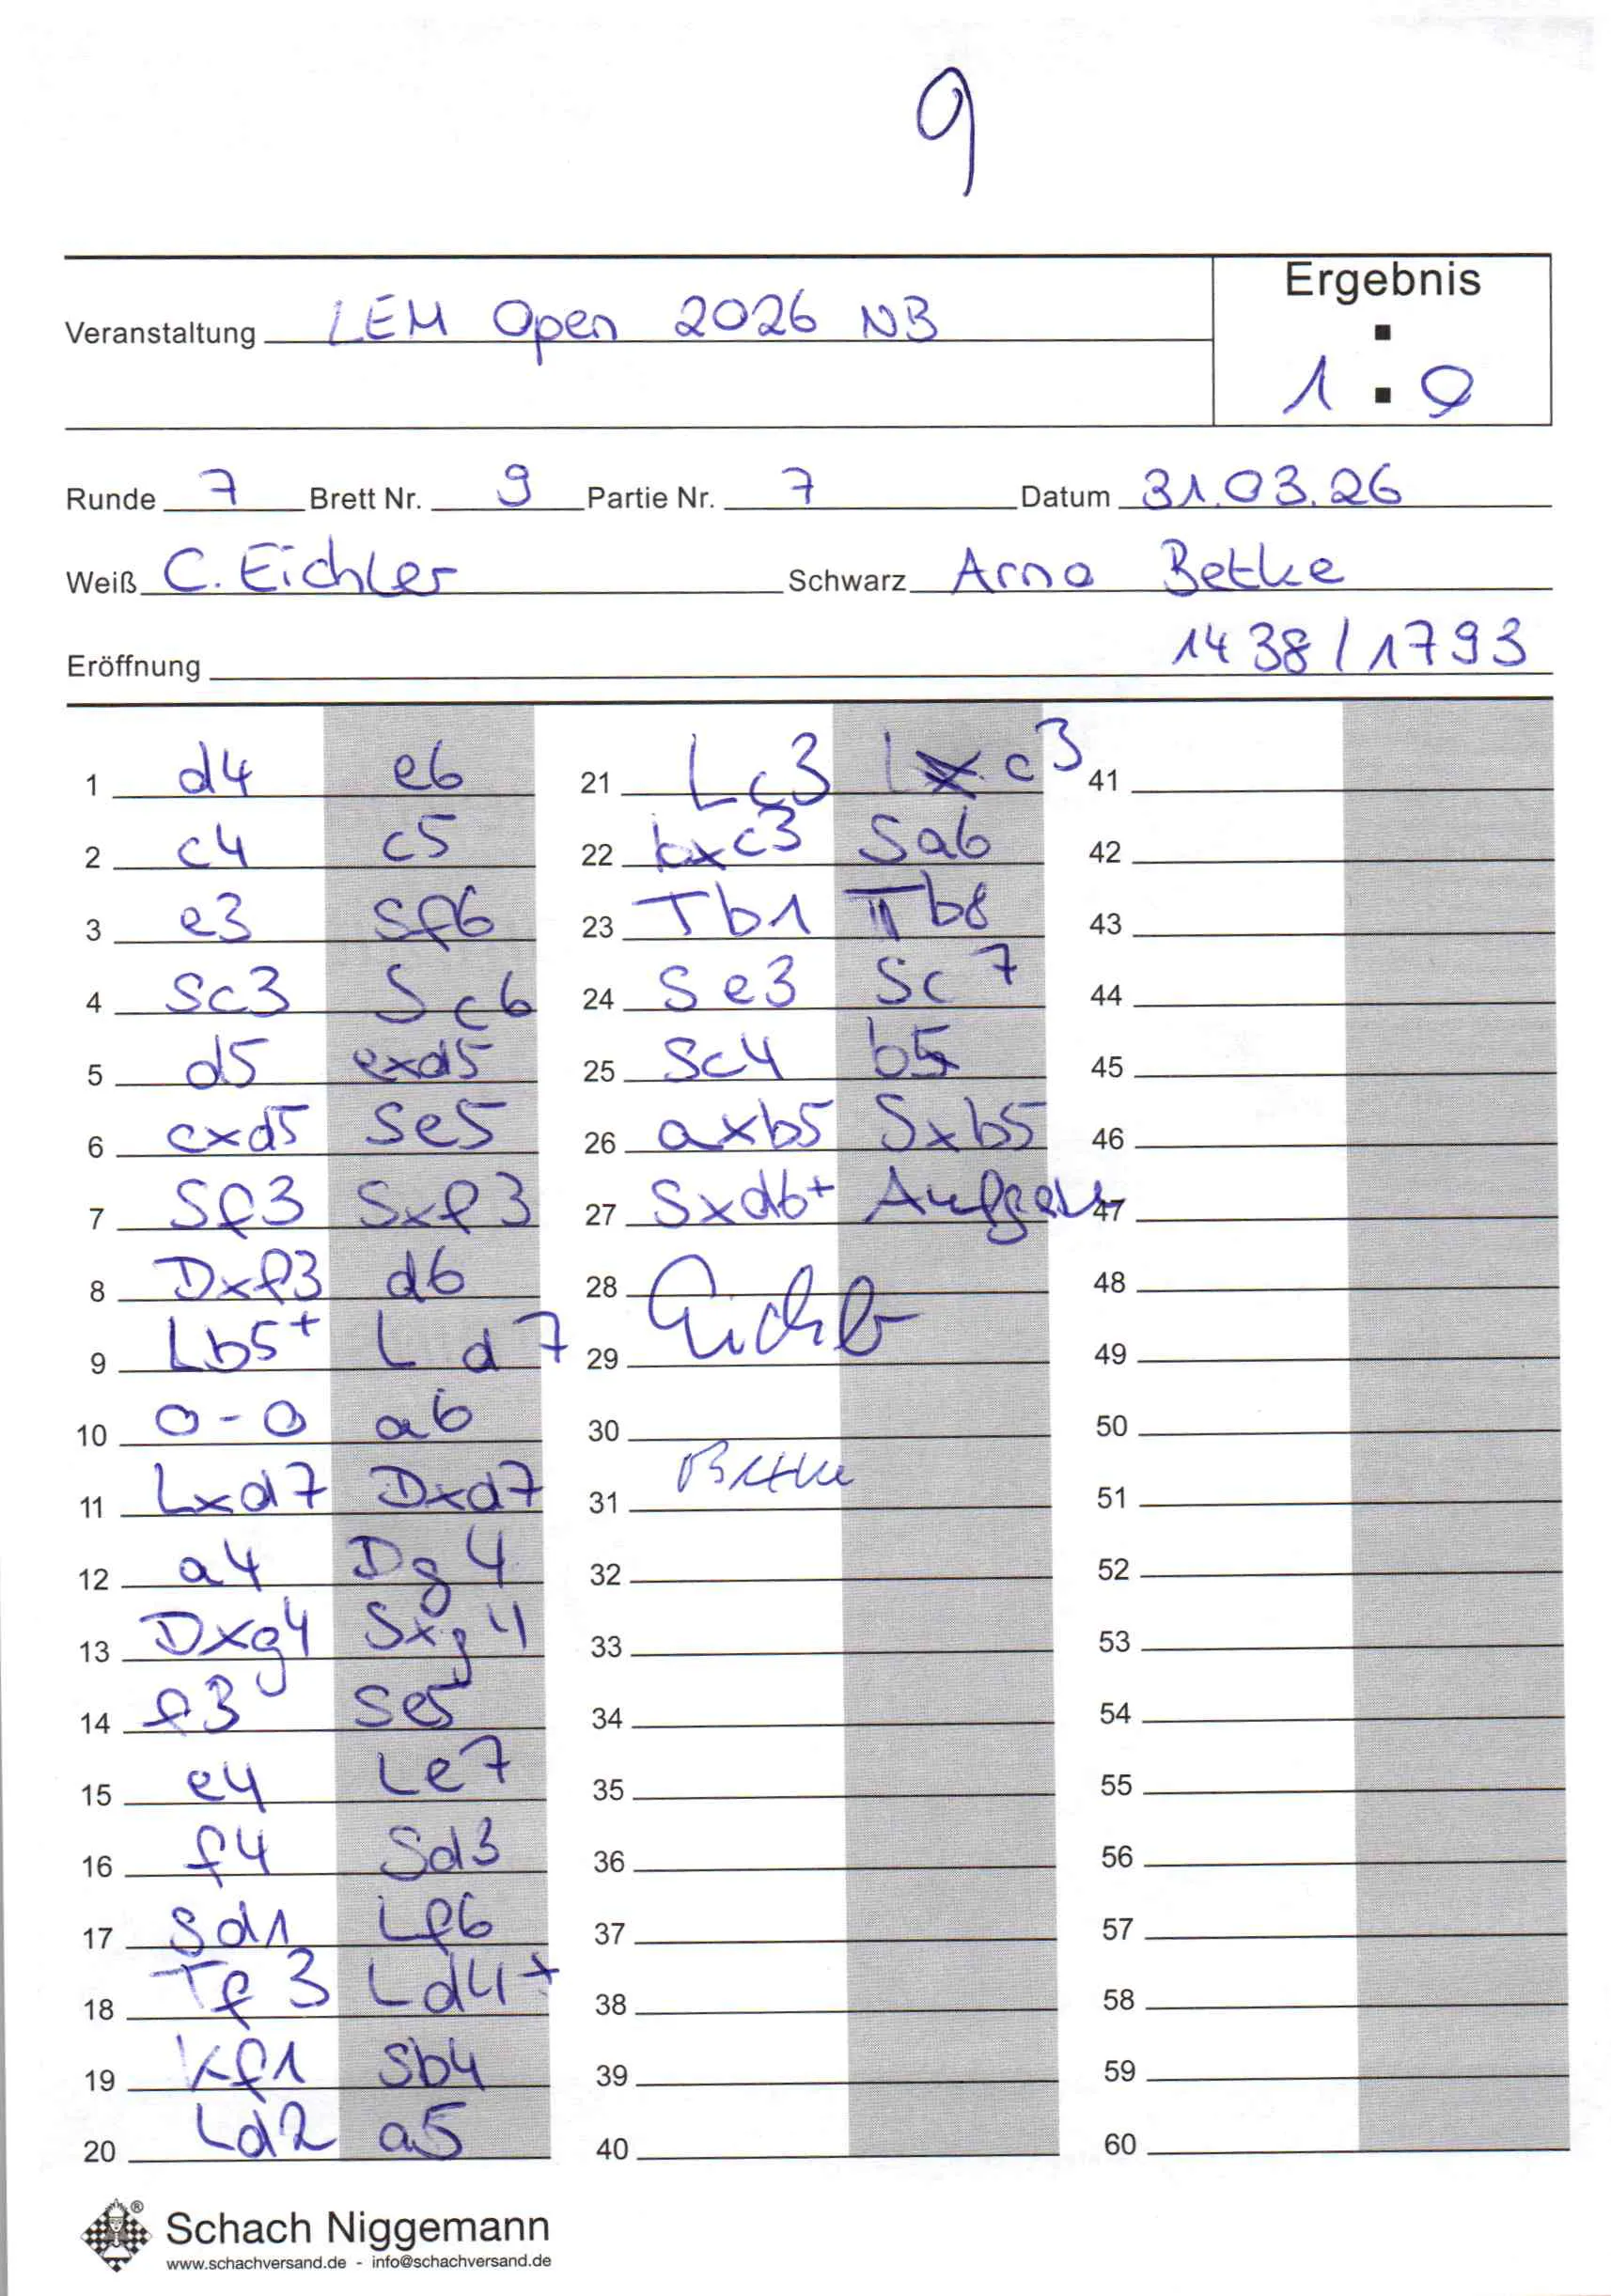 9
Ergebnis
Veranstaltung LEM Open 2026 NB
:
1 : 0
Runde 7 Brett Nr. 9 Partie Nr. 7 Datum 31.03.26
Weiß C. Eichler Schwarz Arno Betke
Eröffnung 1438/1793
1 d4 e6
2 c4 c5
3 e3 Sf6
4 Sc3 Sc6
5 d5 exd5
6 cxd5 Se5
7 Sf3 Sxf3
8 Dxf3 d6
9 Lb5+ Ld7
10 0-0 a6
11 Lxd7 Dxd7
12 a4 Dg4
13 Dxg4 Sxg4
14 f3 Se5
15 e4 Le7
16 f4 Sd3
17 Sd1 Lf6
18 Tf3 Ld4+
19 Kf1 Sb4
20 Ld2 a5
21 Lc3 Lxc3
22 bxc3 Sa6
23 Tb1 Tb8
24 Se3 Sc7
25 Sc4 b5
26 axb5 Sxb5
27 Sxd6+
28
29
30
31 Betke
32
33
34
35
36
37
38
39
40
41
42
43
44
45
46
47
48
49
50
51
52
53
54
55
56
57
58
59
60
Schach Niggemann ®
www.schachversand.de - info@schachversand.de